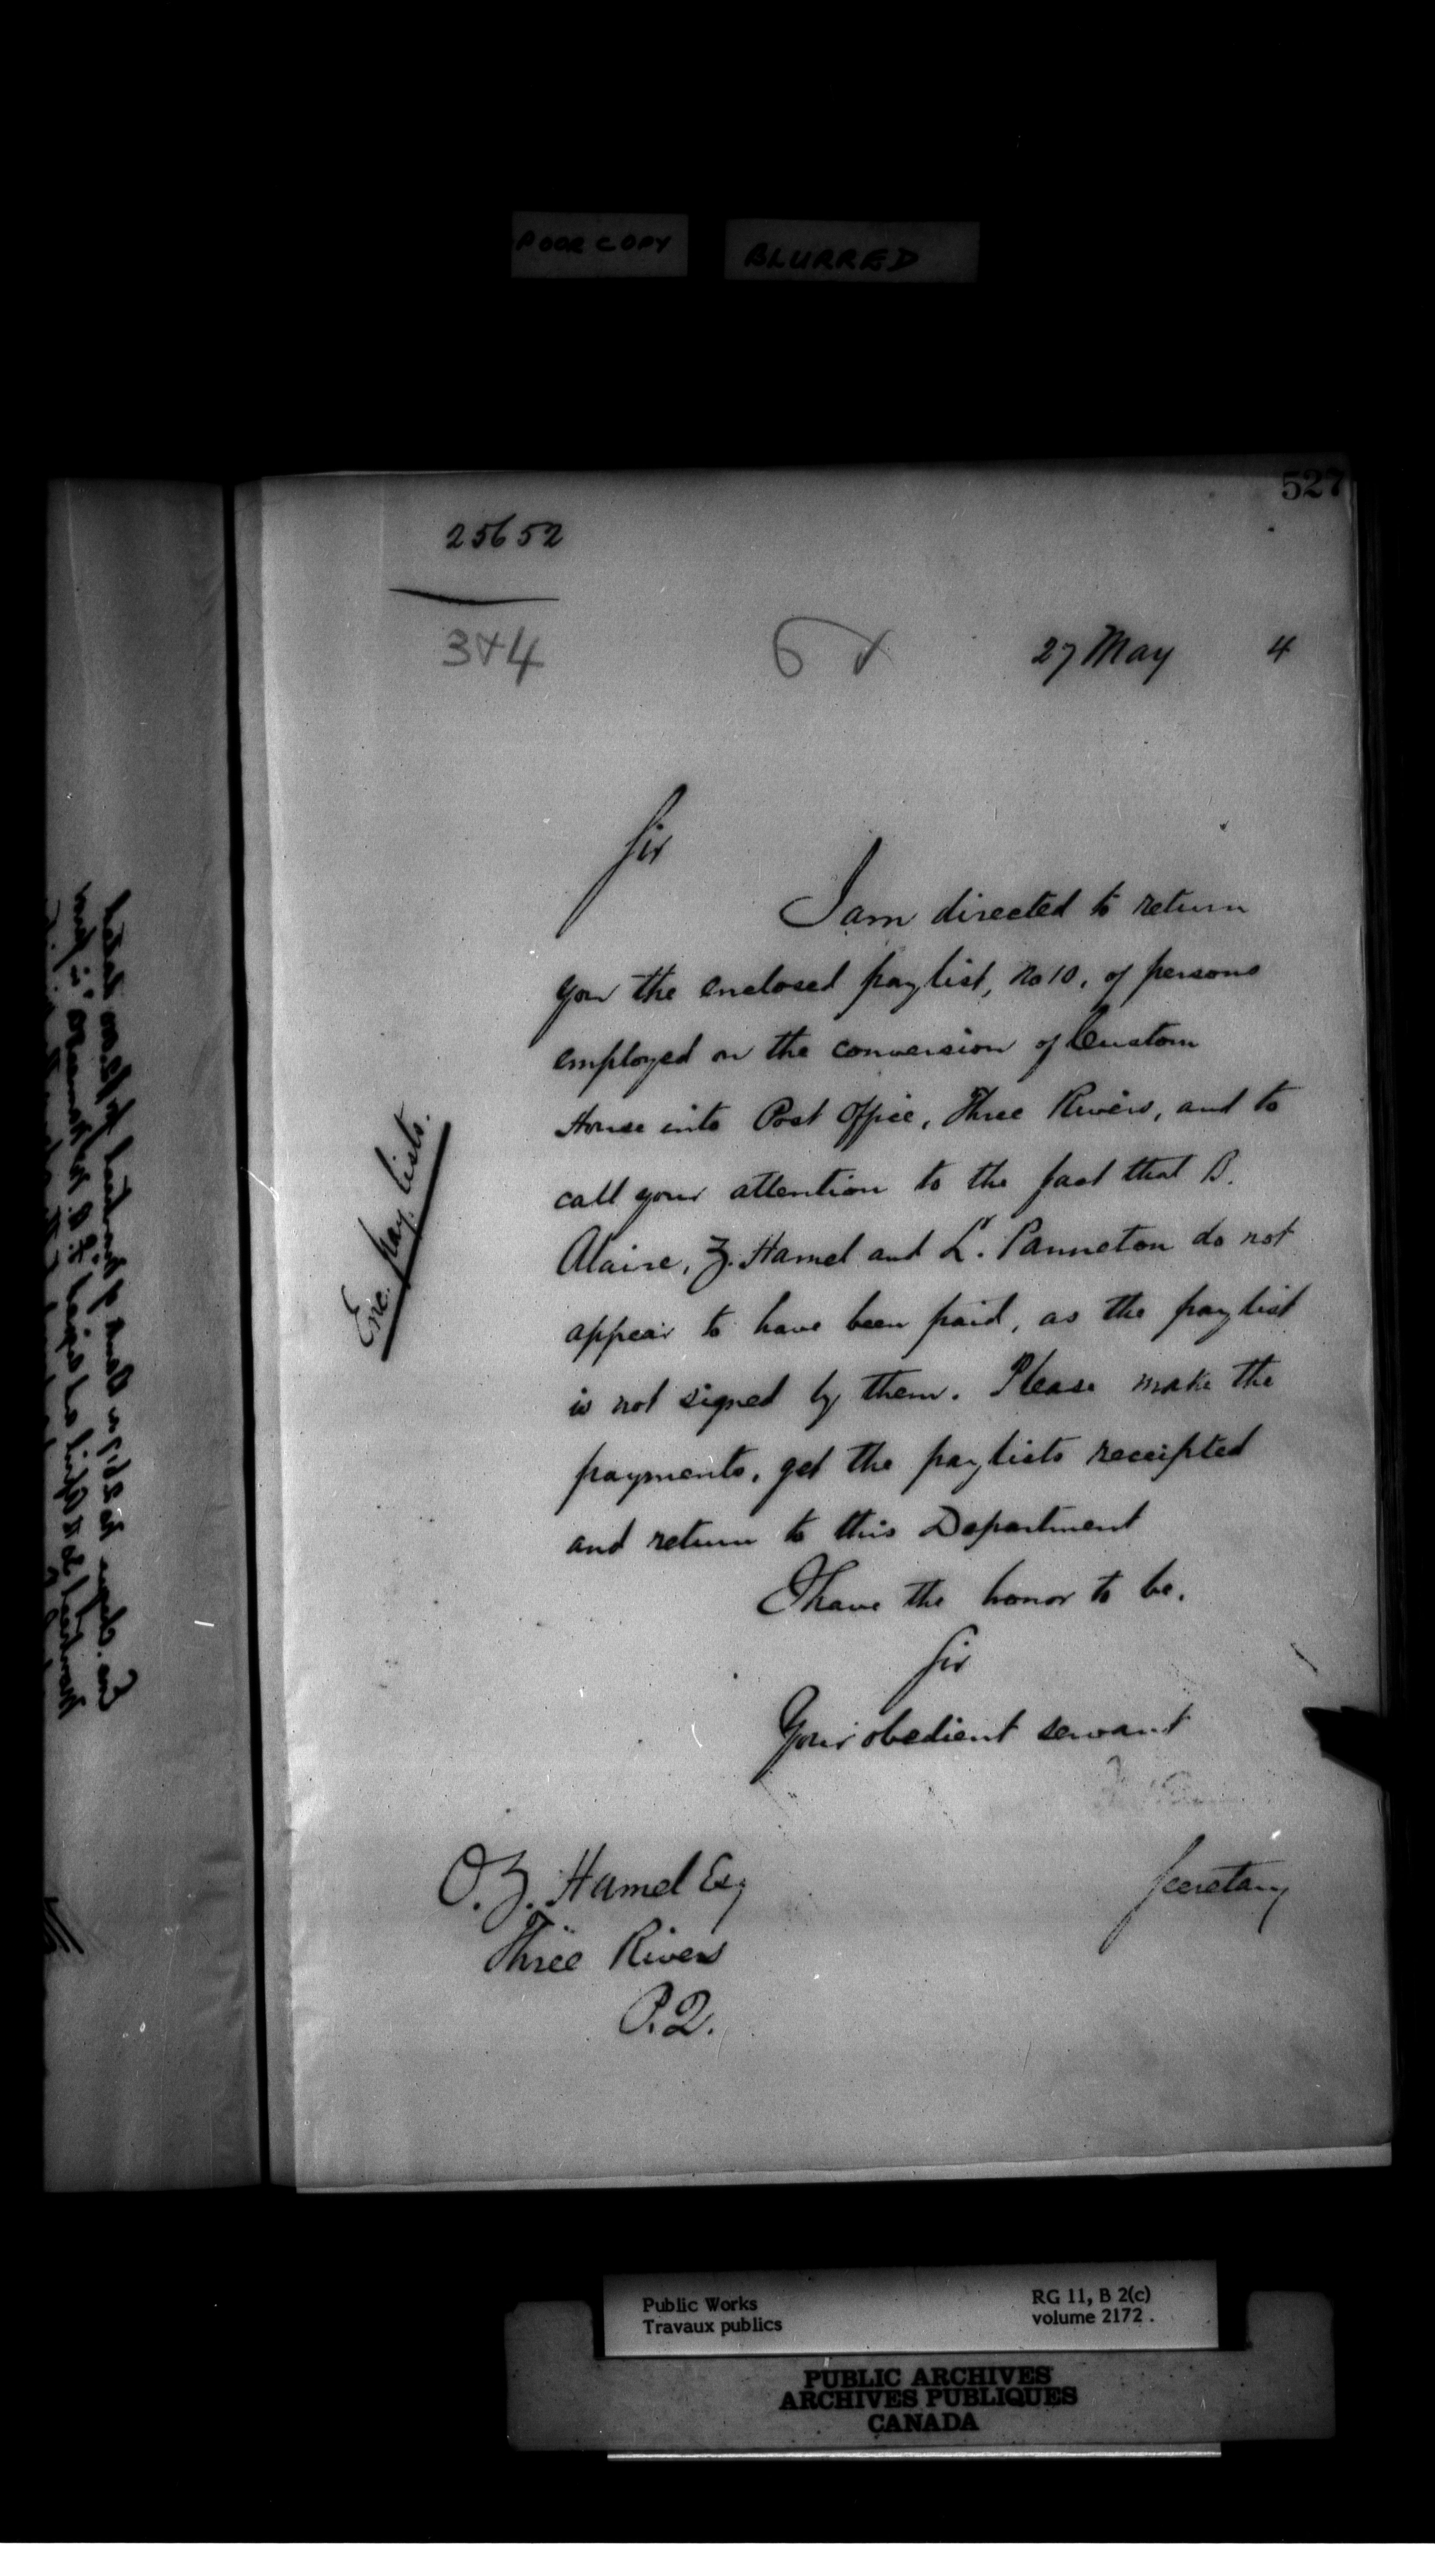 POOR COPY
BLURRED
527
25652
3 & 4
27 May 4
Sir
I am directed to return
you the enclosed paylist, No 10, of persons
employed on the conversion of Custom
House into Post Office, Three Rivers, and to
call your attention to the fact that B.
Alaire, Z. Hamel and L. Panneton do not
appear to have been paid, as the paylist
is not signed by them. Please make the
payments, get the paylists receipted
and return to this Department
I have the honor to be,
Sir
Your obedient servant
Secretary
Enc. pay lists.
O. Z. Hamel Esq
Three Rivers
P.Q.
Public Works
Travaux publics
RG 11, B 2(c)
volume 2172.
PUBLIC ARCHIVES
ARCHIVES PUBLIQUES
CANADA